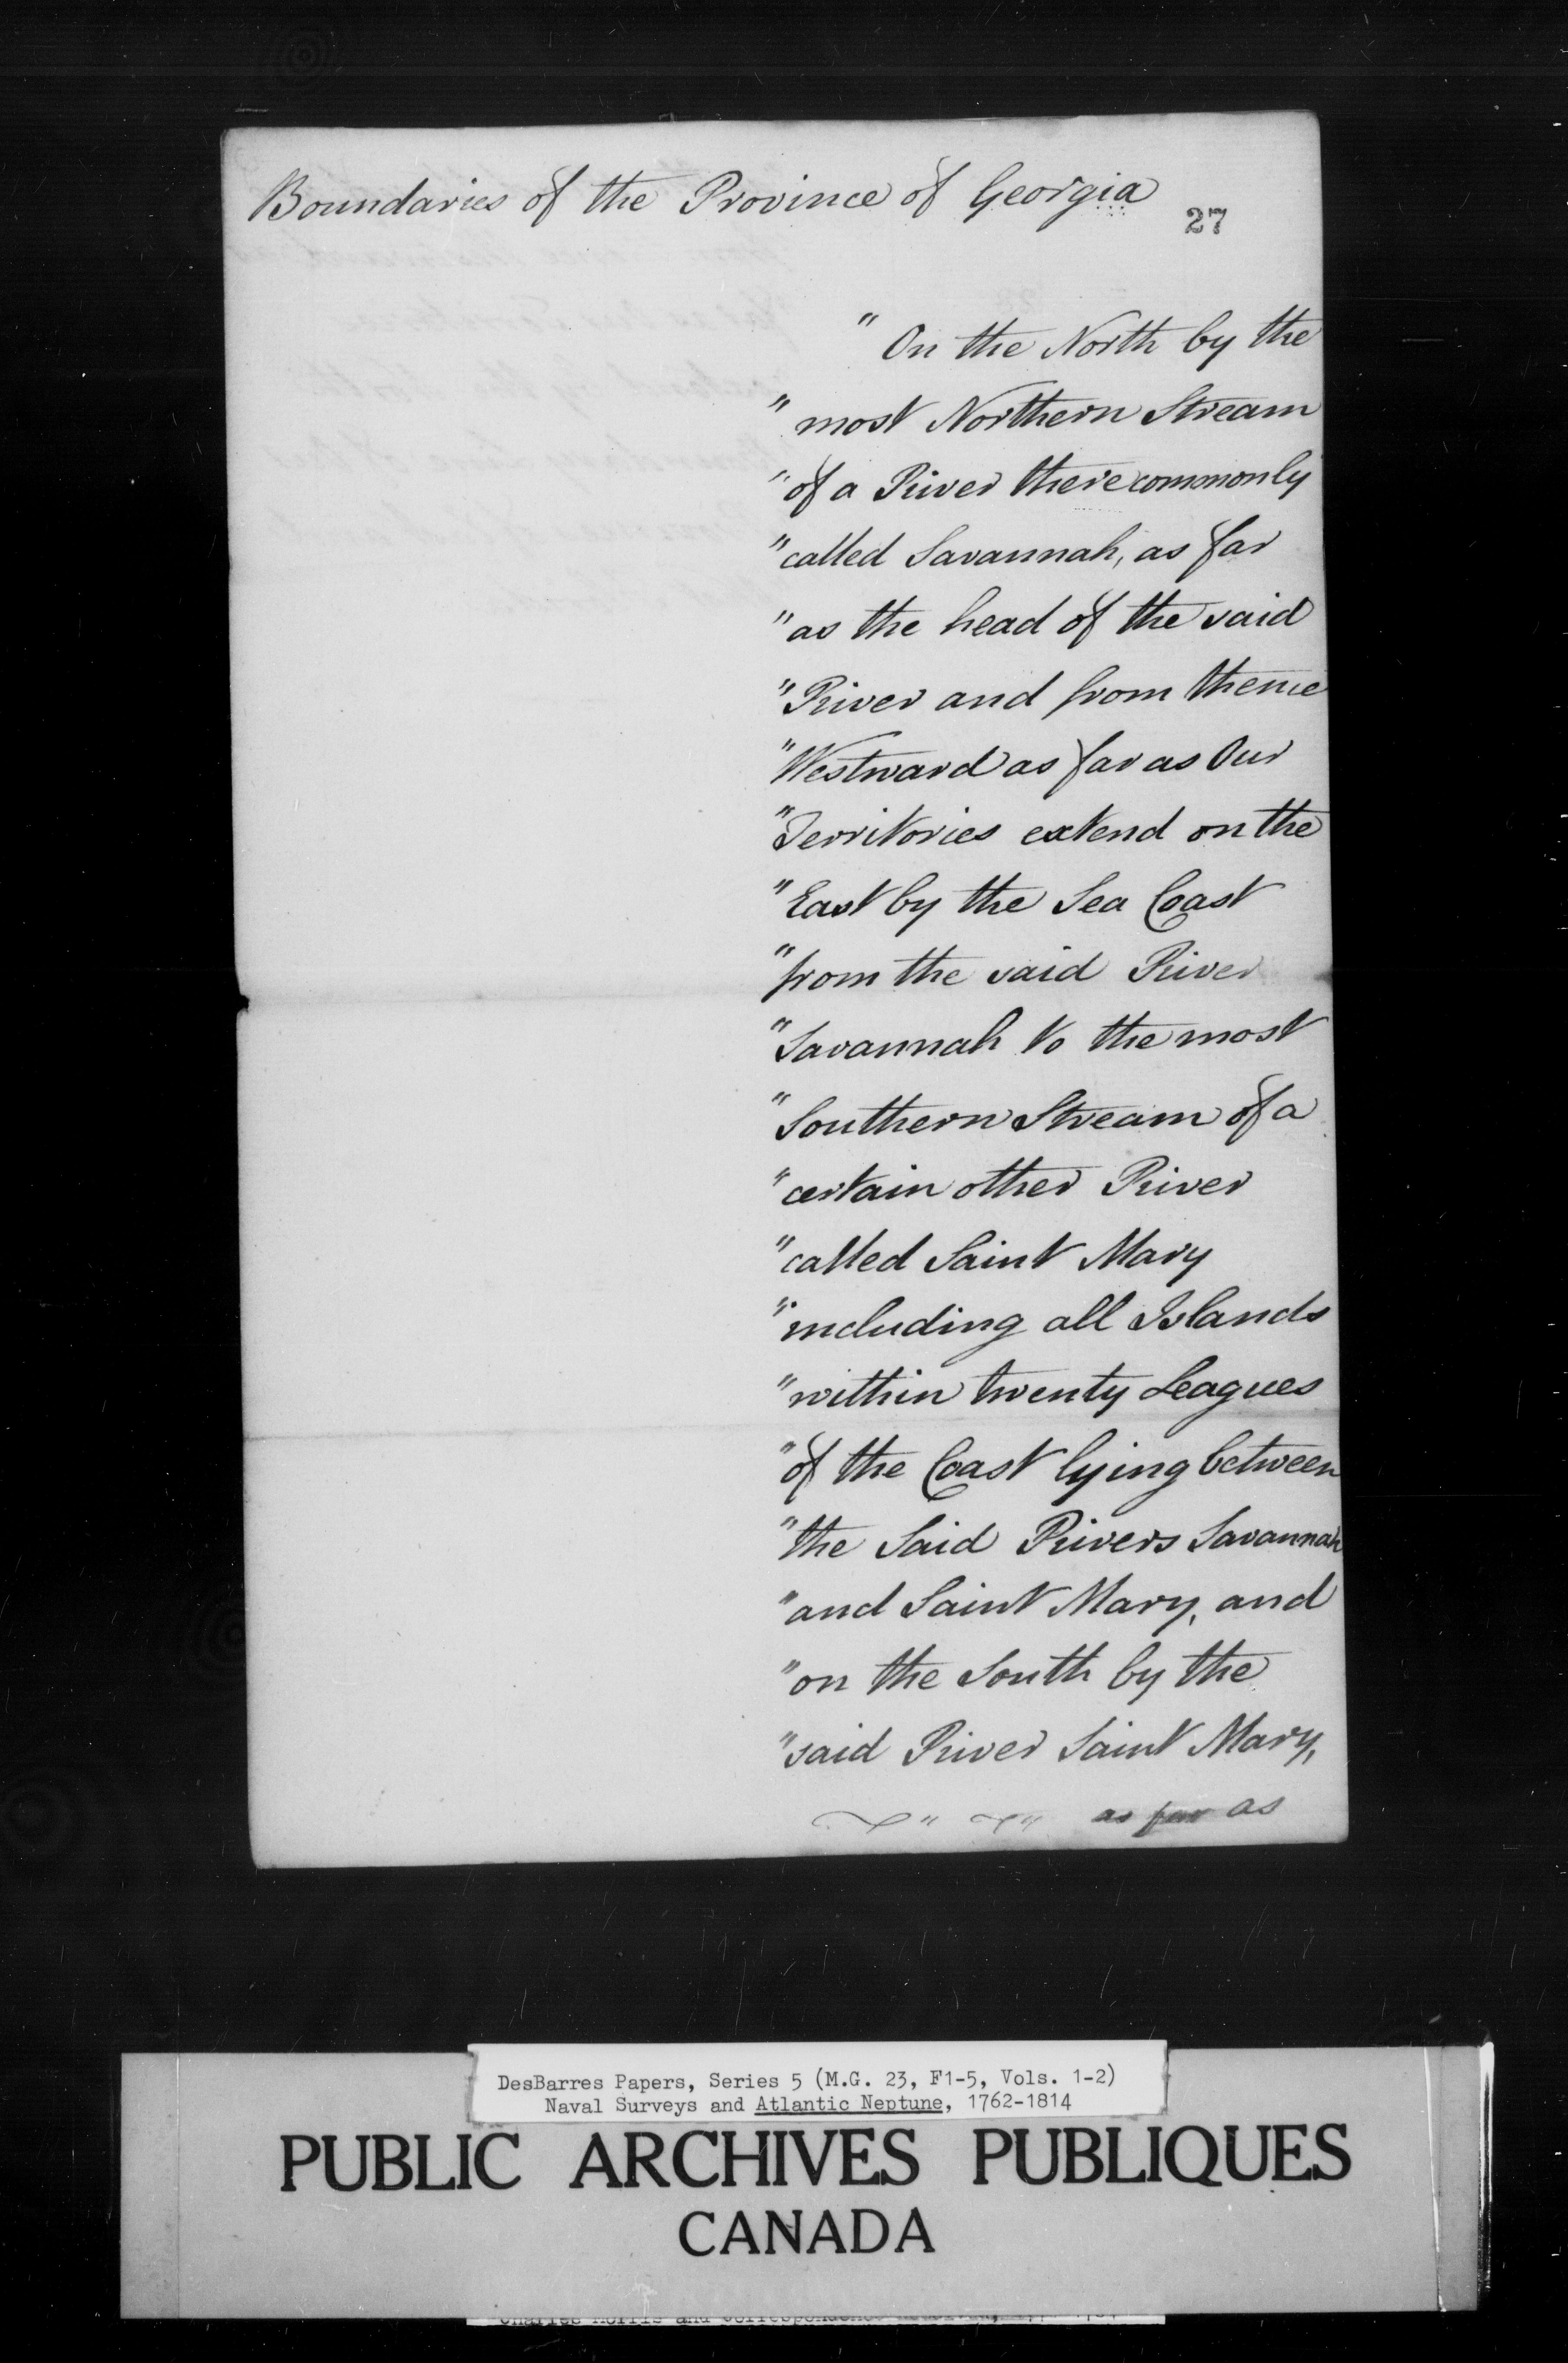 Boundaries of the Province of Georgia
27
" On the North by the
" most Northern Stream
" of a River there commonly
" called Savannah, as far
" as the head of the said
" River and from thence
" Westward as far as Our
" Territories extend on the
" East by the Sea Coast
" from the said River
" Savannah to the most
" Southern Stream of a
" certain other River
" called Saint Mary
" including all Islands
" within twenty Leagues
" of the Coast lying between
" the Said Rivers Savannah
" and Saint Mary, and
" on the South by the
" said River Saint Mary,
" " as far as
DesBarres Papers, Series 5 (M.G. 23, F1-5, Vols. 1-2)
Naval Surveys and Atlantic Neptune, 1762-1814
PUBLIC ARCHIVES PUBLIQUES
CANADA